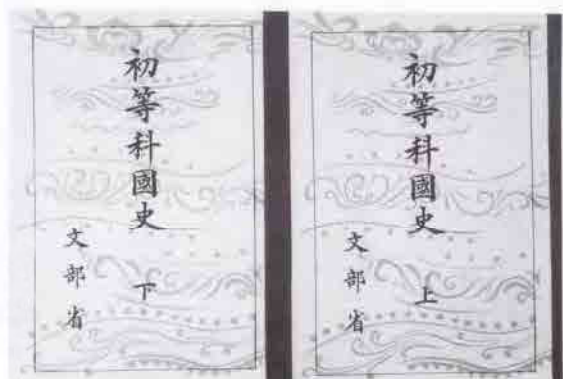 初等科國史
上
文部省
初等科國史
下
文部省